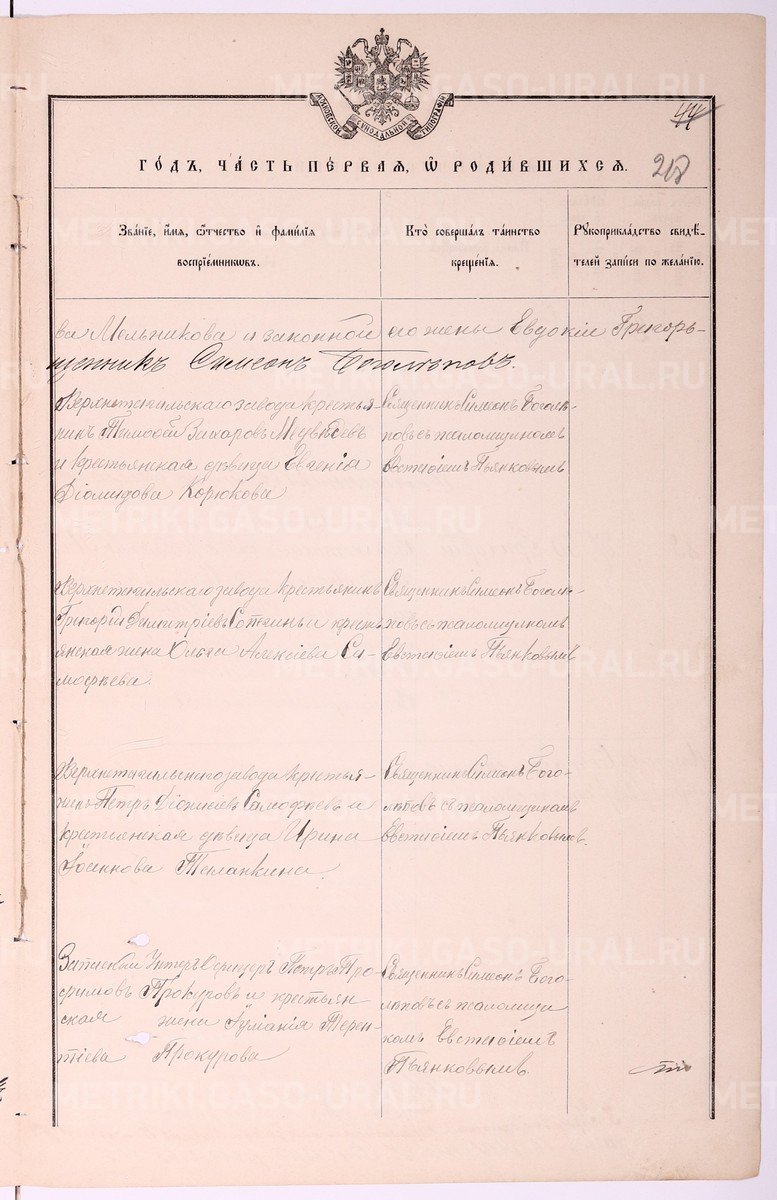 МОСКОВСКОЙ СУНОДАЛЬНОЙ ТИПОГРАФІИ
44
ГОДЪ, ЧАСТЬ ПЕРВАЯ, Ѡ РОДИВШИХСЯ.
Званіе, имя, отчество и фамилія
воспріемниковъ.
Кто совершалъ таинство
крещенія.
Рукоприкладство свидѣ-
телей записи по желанію.
ва Мельникова и законной его жены Евдокіи Григорь-
щенникъ Симеонъ Боголѣповъ.
Верхнетагильскаго завода крестья-
нинъ Тимофей Захаровъ Медвѣдевъ
и крестьянская дѣвица Евгенія
Діомидова Корюкова
Священникъ Симеонъ Боголѣ-
повъ съ псаломщикомъ
Евстегіемъ Пьянковымъ
Верхнетагильскаго завода крестьянинъ
Григорій Димитріевъ и кресть
янская жена Ольга Алексіева Са-
мофѣева.
Священникъ Симеонъ Боголѣ-
повъ съ псаломщикомъ
Евстегіемъ Пьянковымъ
Верхнетагильскаго завода крестья-
нинъ Петръ Діонисіевъ Самофѣевъ и
крестьянская дѣвица Ирина
Священникъ Симеонъ Бого-
лѣповъ съ псаломщикомъ
Евстегіемъ Пьянковымъ.
Запасный Унтеръ Офицеръ Петръ Про-
Прокуровъ и крестьян-
ская жена Терен-
тіева Прокурова
Священникъ Симеонъ Бого-
лѣповъ съ псаломщи
комъ Евстегіемъ
Пьянковымъ.
METRIKI.GASO-URAL.RU